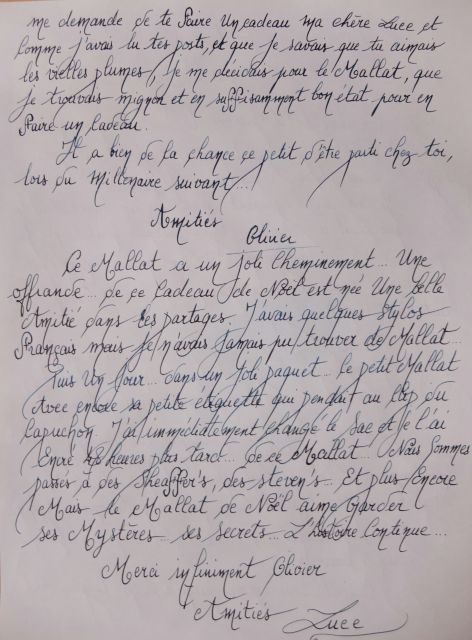 me demande de te faire un cadeau ma chère Luce et
comme j'avais lu tes posts, et que je savais que tu aimais
les vielles plumes, je me décidais pour le Mallat, que
je trouvais mignon et en suffisamment bon état pour en
faire un cadeau.
Il a bien de la chance ce petit d'être parti chez toi,
lors du Millénaire suivant...
Amitiés
Olivier
Ce Mallat a un joli cheminement... Une
offrande... de ce Cadeau de Noël est née Une belle
Amitié dans les partages. J'avais quelques stylos
Français mais je n'avais jamais pu trouver de Mallat...
Puis Un jour... dans un joli paquet... le petit Mallat
Avec encore sa petite étiquette qui pendait au Clip du
Capuchon. J'ai immédiatement changé le Sac et je l'ai
Encré 48 heures plus tard... de ce Mallat... Nous Sommes
passés à des Sheaffer's, des Steven's... Et plus Encore
Mais le Mallat de Noël aime Garder
ses Mystères... ses secrets... L'histoire Continue...
Merci infiniment Olivier
Amitiés
Luce